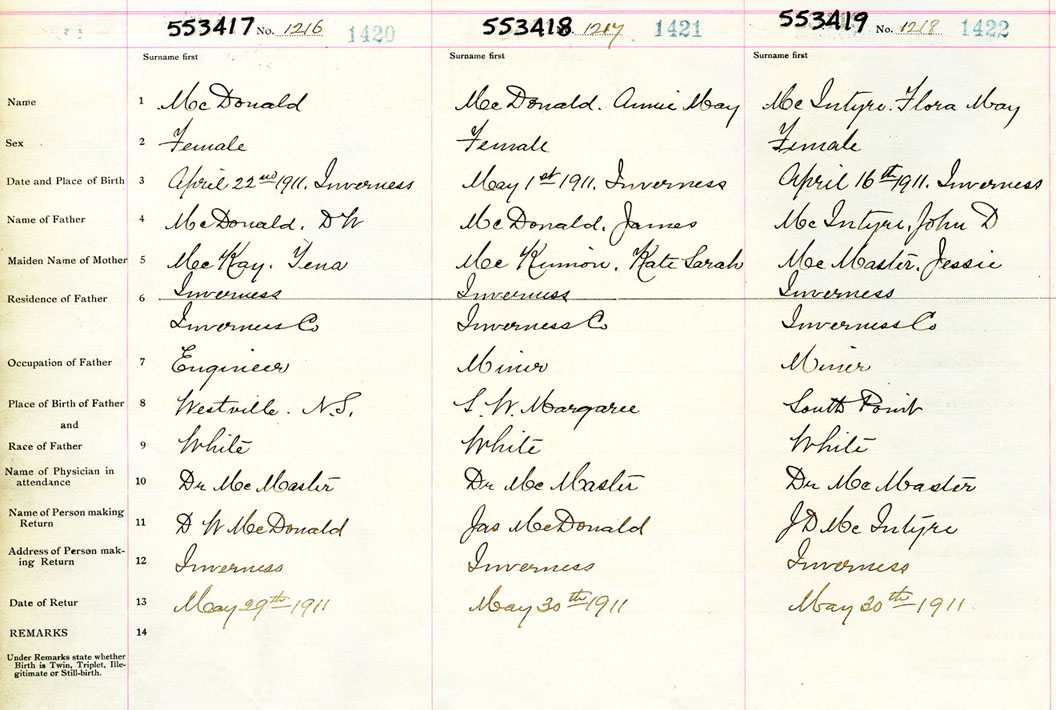 553417 No. 1216 1420 553418 1217 1421 553419 No. 1218 1422
Surname first Surname first Surname first
Name 1 McDonald McDonald. Annie May McIntyre. Flora May
Sex 2 Female Female Female
Date and Place of Birth 3 April 22nd 1911. Inverness May 1st 1911. Inverness April 16th 1911. Inverness
Name of Father 4 McDonald. D W McDonald. James McIntyre. John D
Maiden Name of Mother 5 McKay. Tena McKinnon. Kate Sarah McMaster. Jessie
Residence of Father 6 Inverness Inverness Inverness
Inverness Co Inverness Co Inverness Co
Occupation of Father 7 Engineer Miner Miner
Place of Birth of Father 8 Westville. N.S. S. W. Margaree South Point
and
Race of Father 9 White White White
Name of Physician in
attendance 10 Dr McMaster Dr McMaster Dr McMaster
Name of Person making
Return 11 D W McDonald Jas McDonald J D McIntyre
Address of Person mak-
ing Return 12 Inverness Inverness Inverness
Date of Retur 13 May 29th 1911 May 30th 1911 May 30th 1911
REMARKS 14
Under Remarks state whether
Birth is Twin, Triplet, Ille-
gitimate or Still-birth.